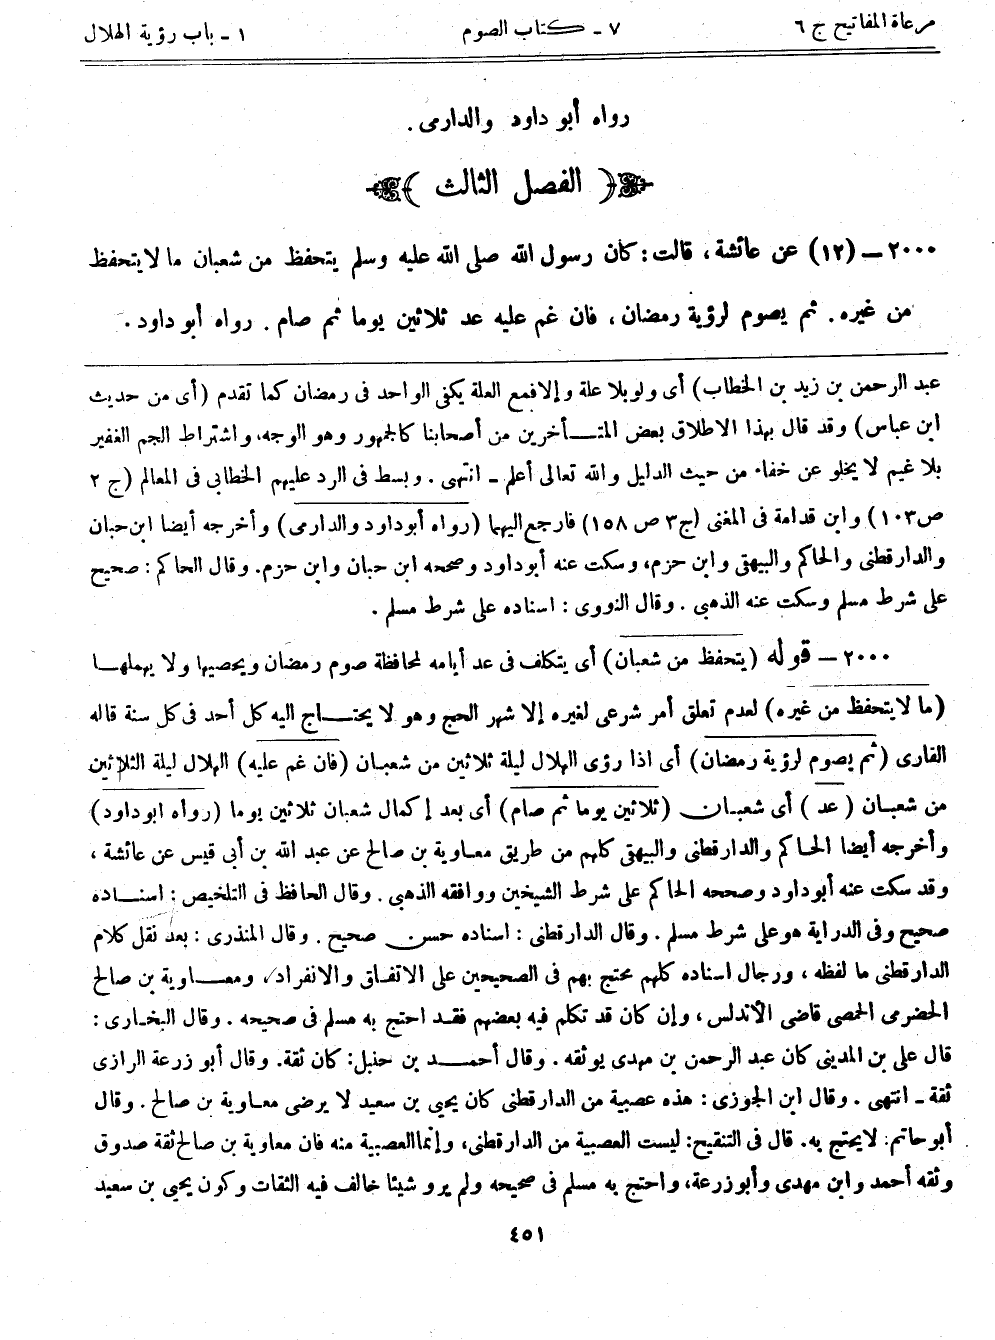 مرعاة المفاتيح ج ٦ ٧ ـ كتاب الصوم ١ ـ باب رؤية الهلال
رواه أبو داود والدارمى .
﴿ الفصل الثالث ﴾
٢٠٠٠ ــ (١٢) عن عائشة، قالت: كان رسول الله صلى الله عليه وسلم يتحفظ من شعبان ما لا يتحفظ
من غيره. ثم يصوم لرؤية رمضان، فان غم عليه عد ثلاثين يوما ثم صام. رواه أبو داود.
عبد الرحمن بن زيد بن الخطاب) أى ولو بلا علة وإلا فمع العلة يكفى الواحد فى رمضان كما تقدم (أى من حديث
ابن عباس) وقد قال بهذا الاطلاق بعض المتأخرين من أصحابنا كالجمهور وهو الوجه، واشتراط الجم الغفير
بلا غيم لا يخلو عن خفاء من حيث الدليل والله تعالى أعلم ـ انتهى . وبسط فى الرد عليهم الخطابى فى المعالم (ج ٢
ص ١٠٣) وابن قدامة فى المغنى (ج ٣ ص ١٥٨) فارجع اليهما (رواه أبوداود والدارمى) وأخرجه أيضا ابن حبان
والدارقطنى والحاكم والبيهقى وابن حزم، وسكت عنه أبوداود وصححه ابن حبان وابن حزم. وقال الحاكم: صحيح
على شرط مسلم وسكت عنه الذهبى . وقال النووى : اسناده على شرط مسلم .
٢٠٠٠ ــ قوله (يتحفظ من شعبان) أى يتكلف فى عد أيامه لمحافظة صوم رمضان ويحصيها ولا يهملها
(ما لا يتحفظ من غيره) لعدم تعلق أمر شرعى لغيره إلا شهر الحج وهو لا يحتاج اليه كل أحد فى كل سنة قاله
القارى (ثم يصوم لرؤية رمضان) أى اذا رؤى الهلال ليلة ثلاثين من شعبان (فان غم عليه) الهلال ليلة الثلاثين
من شعبان (عد) أى شعبان (ثلاثين يوما ثم صام) أى بعد إكمال شعبان ثلاثين يوما (رواه ابوداود)
وأخرجه أيضا الحاكم والدارقطنى والبيهقى كلهم من طريق معاوية بن صالح عن عبد الله بن أبى قيس عن عائشة ،
وقد سكت عنه أبوداود وصححه الحاكم على شرط الشيخين ووافقه الذهبى . وقال الحافظ فى التلخيص : اسناده
صحيح وفى الدراية هو على شرط مسلم . وقال الدارقطنى : اسناده حسن صحيح . وقال المنذرى : بعد نقل كلام
الدارقطنى ما لفظه ، ورجال اسناده كلهم محتج بهم فى الصحيحين على الاتفاق والانفراد، ومعاوية بن صالح
الحضرمى الحمصى قاضى الأندلس، وإن كان قد تكلم فيه بعضهم فقد احتج به مسلم فى صحيحه . وقال البخارى :
قال على بن المدينى كان عبد الرحمن بن مهدى يوثقه . وقال أحمد بن حنبل: كان ثقة. وقال أبو زرعة الرازى
ثقة ـ انتهى . وقال ابن الجوزى : هذه عصبية من الدارقطنى كان يحيى بن سعيد لا يرضى معاوية بن صالح . وقال
أبو حاتم: لا يحتج به. قال فى التنقيح: ليست العصبية من الدارقطنى، وإنما العصبية منه فان معاوية بن صالح ثقة صدوق
وثقه أحمد وابن مهدى وأبوزرعة، واحتج به مسلم فى صحيحه ولم يرو شيئا خالف فيه الثقات وكون يحيى بن سعيد
٤٥١